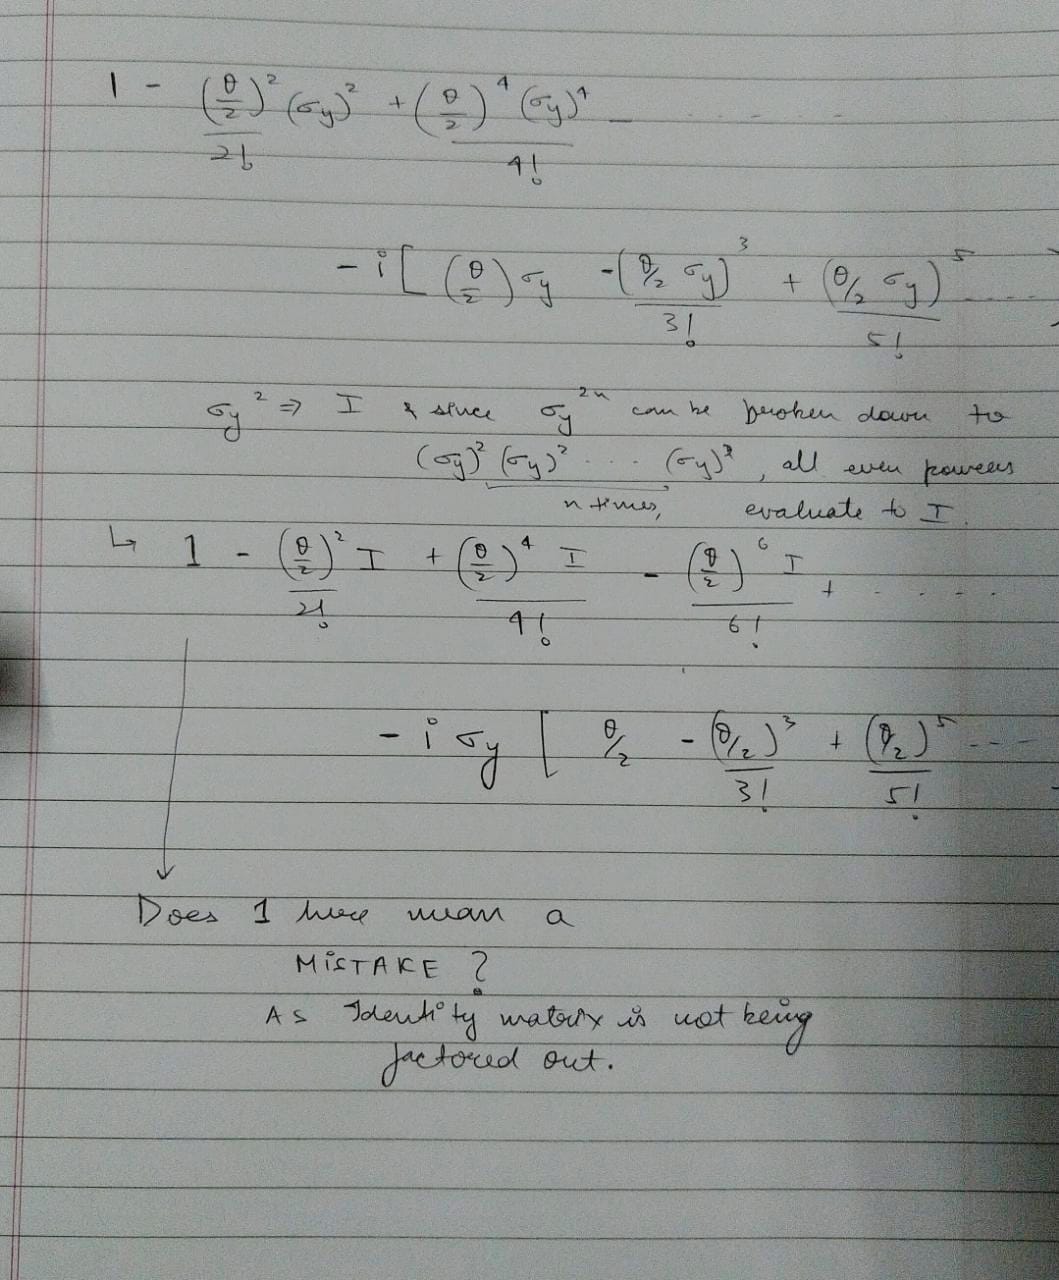 1 - (θ/2)² (σy)² / 2! + (θ/2)⁴ (σy)⁴ / 4! - . . . . . .
- i [ (θ/2) σy - (θ/2 σy)³ / 3! + (θ/2 σy)⁵ / 5! . . . .
σy² ⇒ I & since σy²ⁿ can be broken down to
(σy)² (σy)² . . . (σy)², all even powers
n times, evaluate to I.
↳ 1 - (θ/2)² I / 2! + (θ/2)⁴ I / 4! - (θ/2)⁶ I / 6! + . . . . .
- i σy [ θ/2 - (θ/2)³ / 3! + (θ/2)⁵ / 5! - - -
Does 1 here mean a
MISTAKE ?
As Identity matrix is not being
factored out.